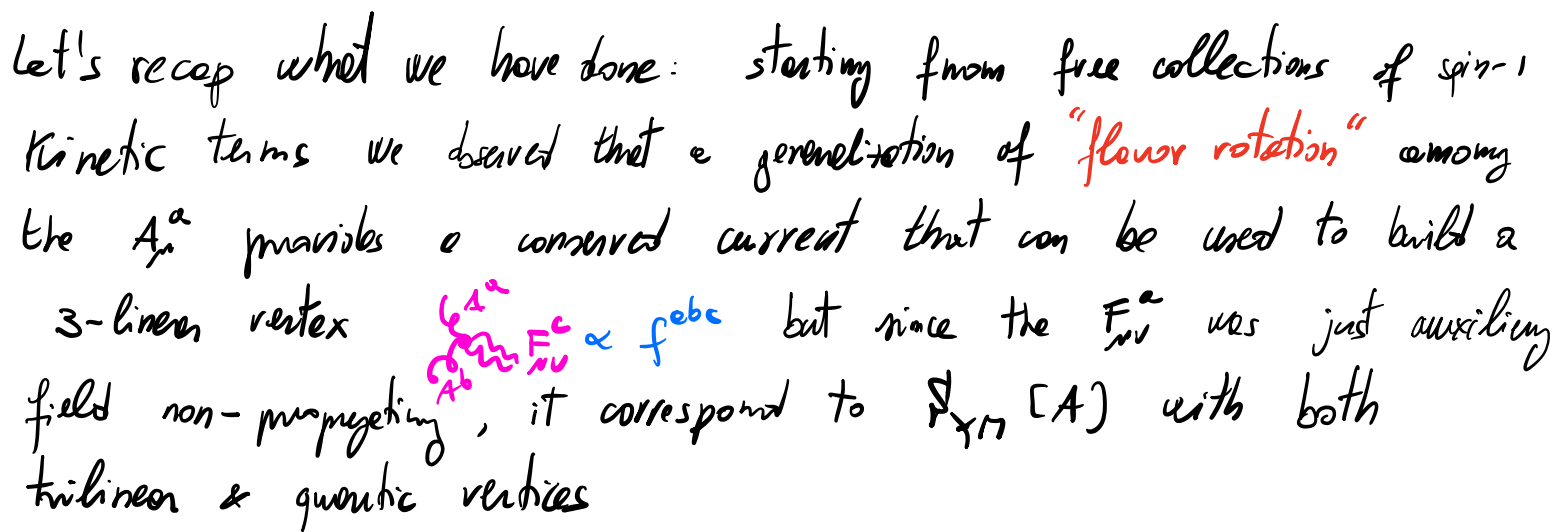 Let's recap what we have done: starting from free collections of spin-1
Kinetic terms we observed that a generalization of "flavor rotation" among
the A_μ^a provides a conserved current that can be used to build a
3-linear vertex A^a A^b F_μν^c ∝ f^abc but since the F_μν^a was just auxiliary
field non-propagating, it correspond to S_YM [A] with both
trilinear & quartic vertices